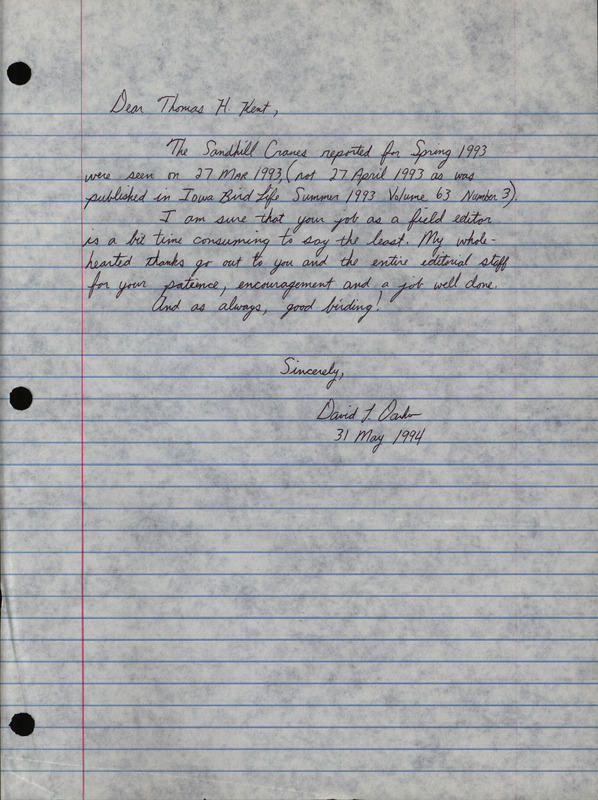 Dear Thomas H. Kent,
The Sandhill Cranes reported for Spring 1993
were seen on 27 MAR 1993, (not 27 April 1993 as was
published in Iowa Bird Life Summer 1993 Volume 63 Number 3).
I am sure that your job as a field editor
is a bit time consuming to say the least. My whole-
hearted thanks go out to you and the entire editorial staff
for your patience, encouragement and a job well done.
And as always, good birding!
Sincerely,
David L.
31 May 1994